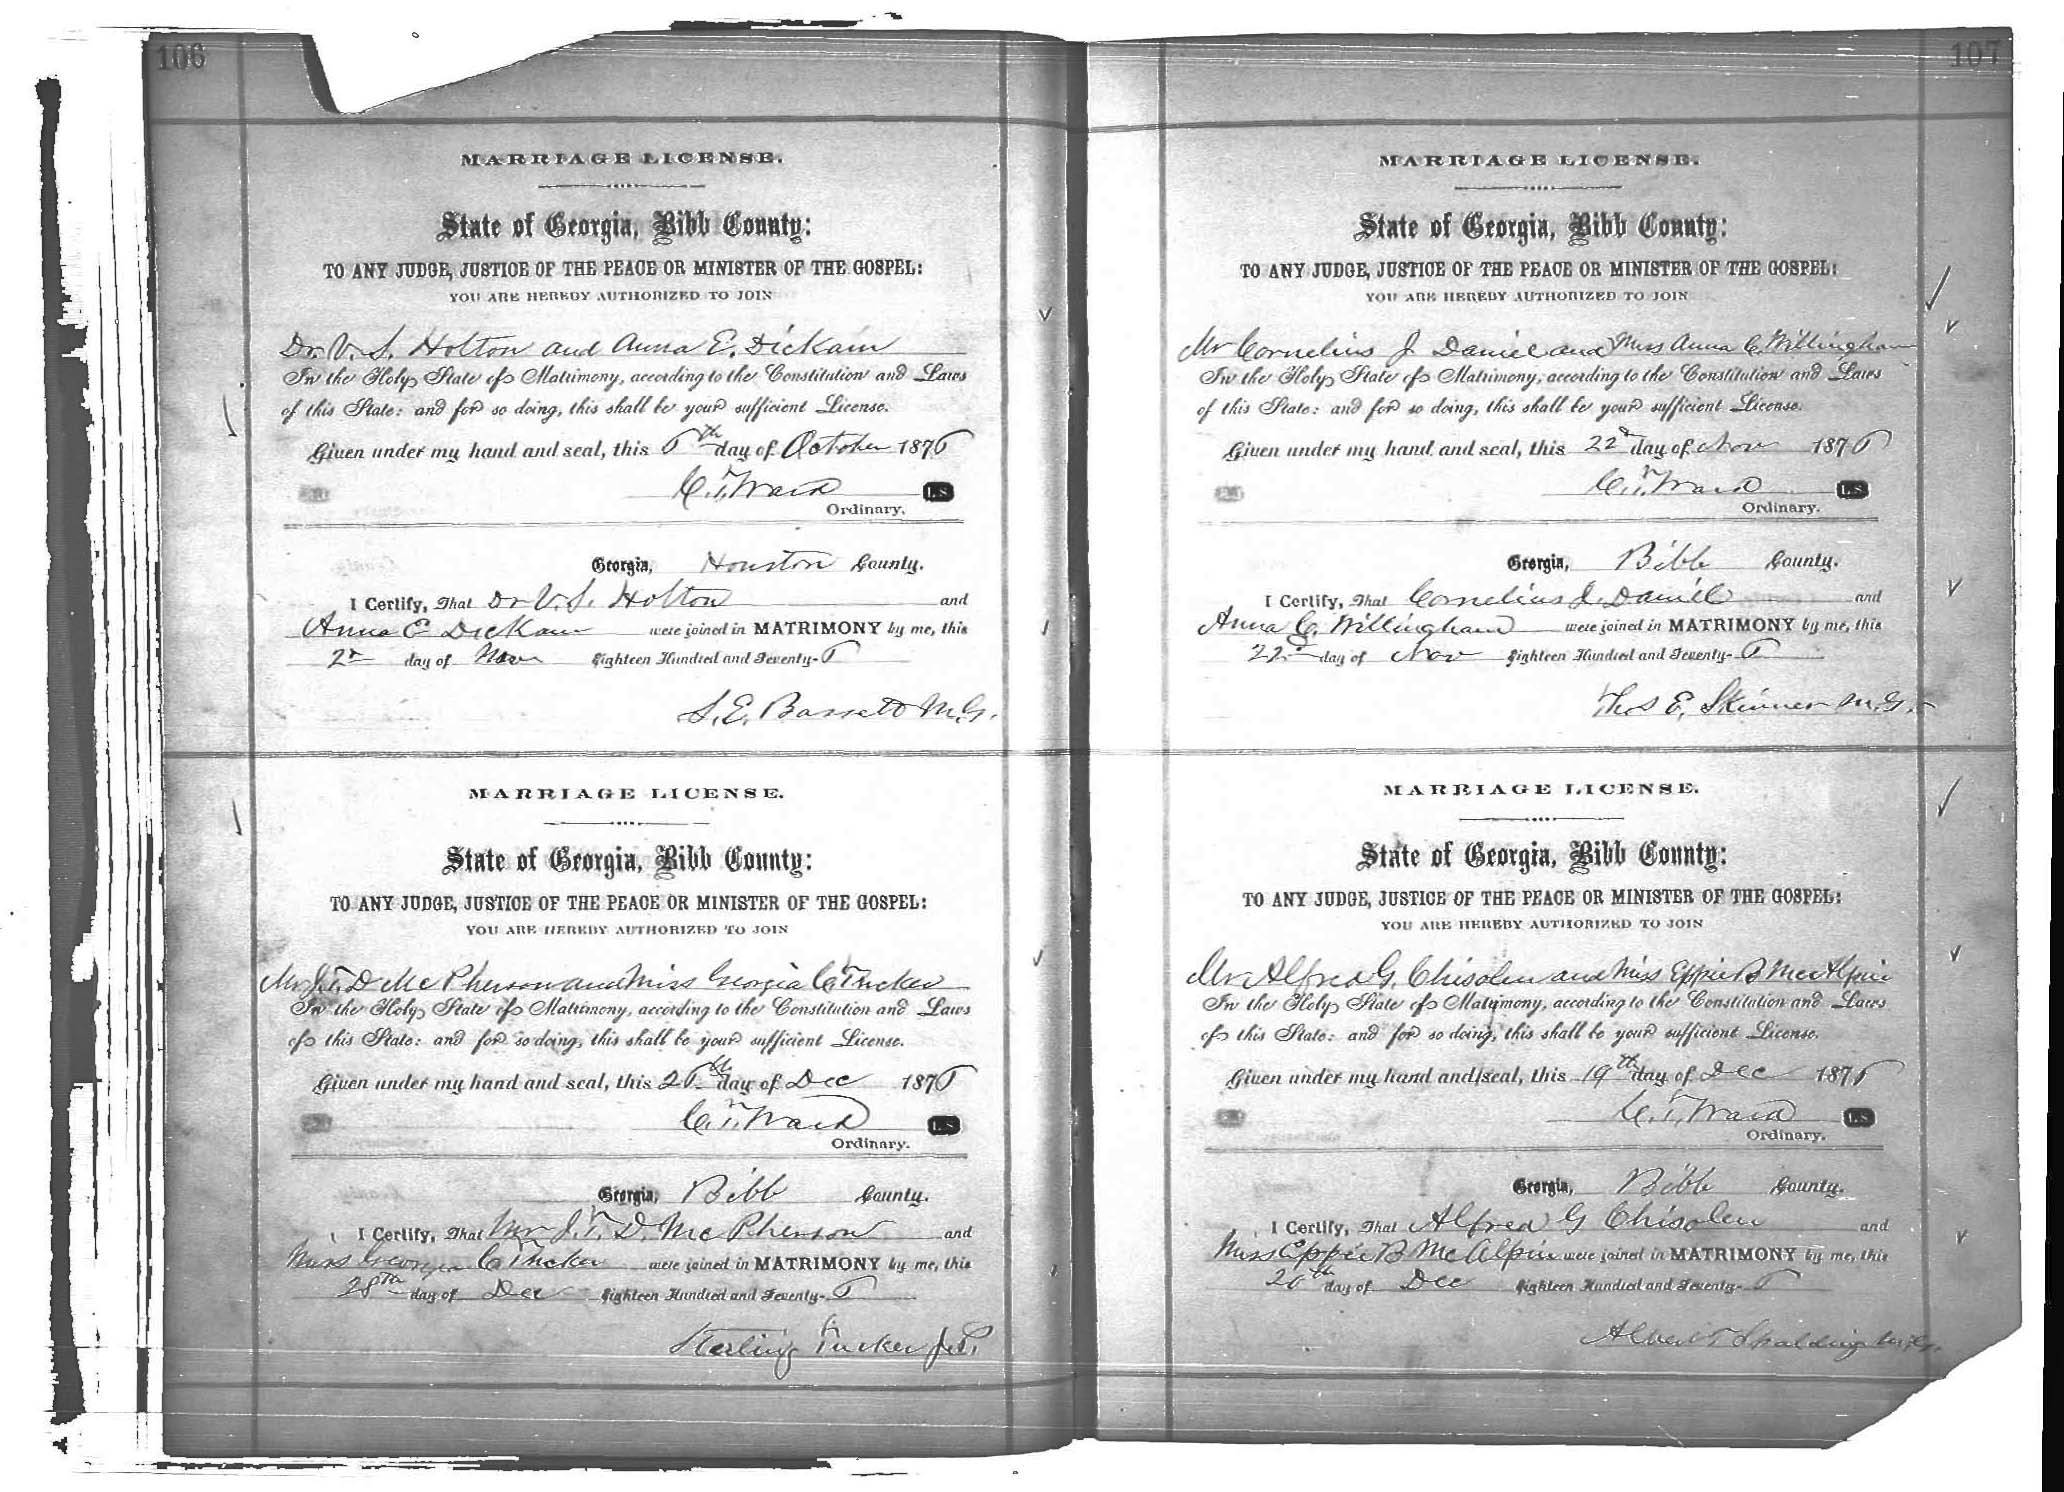 106
MARRIAGE LICENSE.
State of Georgia, Bibb County:
TO ANY JUDGE, JUSTICE OF THE PEACE OR MINISTER OF THE GOSPEL:
YOU ARE HEREBY AUTHORIZED TO JOIN
Dr. V. S. Holton and Anna E. Dickain
In the Holy State of Matrimony, according to the Constitution and Laws
of this State: and for so doing, this shall be your sufficient License.
Given under my hand and seal, this 6th day of October 1876
C. T. Ward L.S.
Ordinary.
Georgia, Houston County.
I Certify, That Dr V. S. Holton and
Anna E Dickain were joined in MATRIMONY by me, this
2n day of Nov Eighteen Hundred and Seventy-6
S. E. Bassett M.G.
MARRIAGE LICENSE.
State of Georgia, Bibb County:
TO ANY JUDGE, JUSTICE OF THE PEACE OR MINISTER OF THE GOSPEL:
YOU ARE HEREBY AUTHORIZED TO JOIN
Mr J. T. D McPherson and Miss Georgia C. Tucker
In the Holy State of Matrimony, according to the Constitution and Laws
of this State: and for so doing, this shall be your sufficient License.
Given under my hand and seal, this 26th day of Dec 1876
C. T. Ward L.S.
Ordinary.
Georgia, Bibb County.
I Certify, That Mr J. T. D. McPherson and
Miss Georgia C Tucker were joined in MATRIMONY by me, this
28th day of Dec Eighteen Hundred and Seventy-6
Sterling Tucker J.P.
107
MARRIAGE LICENSE.
State of Georgia, Bibb County:
TO ANY JUDGE, JUSTICE OF THE PEACE OR MINISTER OF THE GOSPEL:
YOU ARE HEREBY AUTHORIZED TO JOIN
Mr Cornelius J Daniel and Miss Anna C. Willingham
In the Holy State of Matrimony, according to the Constitution and Laws
of this State: and for so doing, this shall be your sufficient License.
Given under my hand and seal, this 22d day of Nov 1876
C. T. Ward L.S.
Ordinary.
Georgia, Bibb County.
I Certify, That Cornelius J. Daniel and
Anna C. Willingham were joined in MATRIMONY by me, this
22d day of Nov Eighteen Hundred and Seventy-6
Thos E. Skinner M.G.
MARRIAGE LICENSE.
State of Georgia, Bibb County:
TO ANY JUDGE, JUSTICE OF THE PEACE OR MINISTER OF THE GOSPEL:
YOU ARE HEREBY AUTHORIZED TO JOIN
Mr Alfred G. Chisolm and Miss Eppie B McAlpin
In the Holy State of Matrimony, according to the Constitution and Laws
of this State: and for so doing, this shall be your sufficient License.
Given under my hand and seal, this 19th day of Dec 1876
C. T. Ward L.S.
Ordinary.
Georgia, Bibb County.
I Certify, That Alfred G Chisolm and
Miss Eppie B McAlpin were joined in MATRIMONY by me, this
20th day of Dec Eighteen Hundred and Seventy-6
Albert T Spalding M.G.